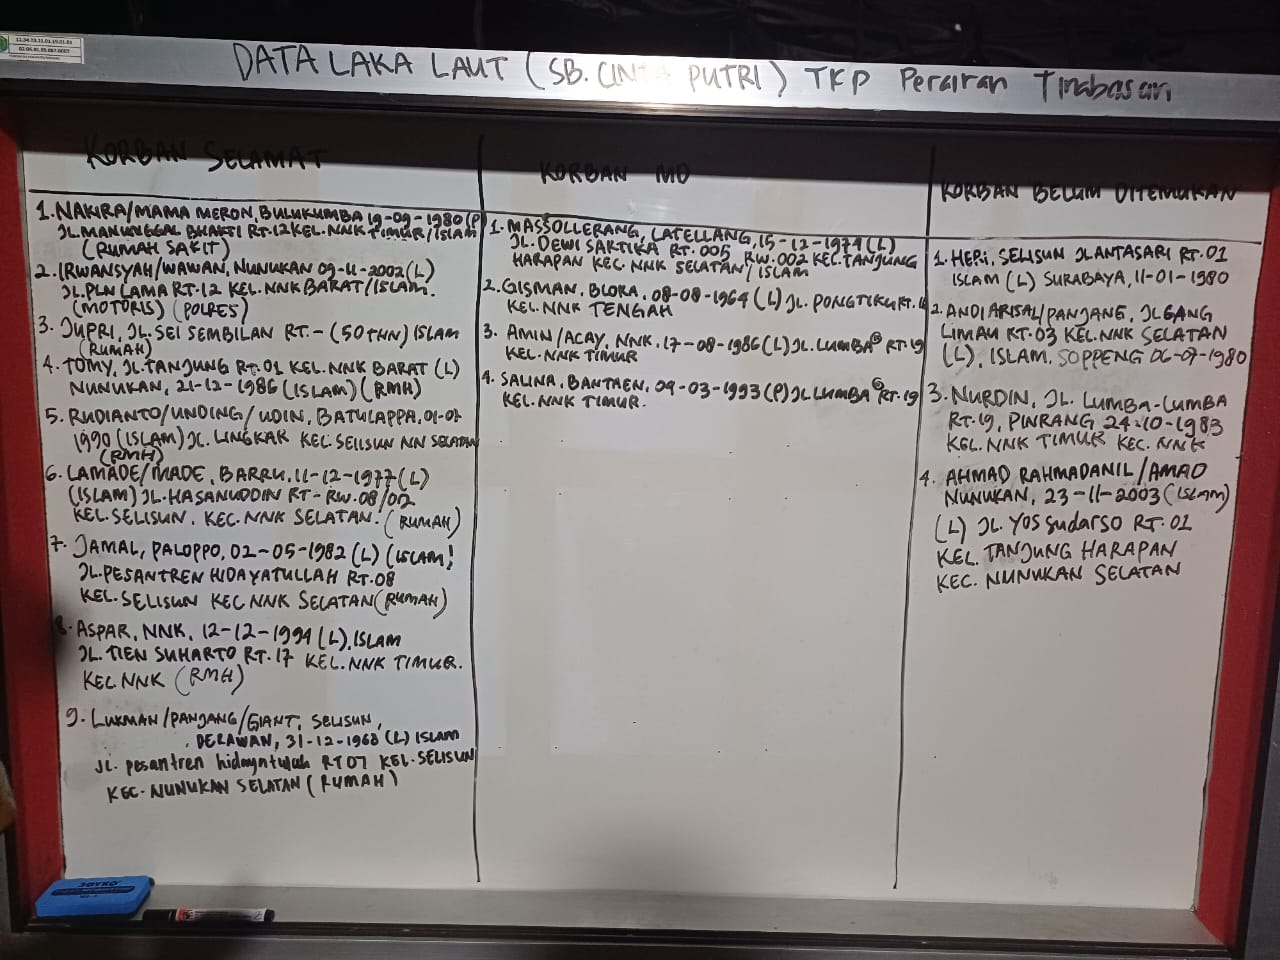 DATA LAKA LAUT (SB. CINTA PUTRI) TKP Perairan Tinabasari
KORBAN SELAMAT
1. NAKIRA/MAMA MERON, BULUKUMBA 19-09-1980 (P)
JL.MANUNGGAL BHAKTI RT.12 KEL.NNK TIMUR/ISLAM
(RUMAH SAKIT)
2. IRWANSYAH/WAWAN, NUNUKAN 09-11-2002 (L)
JL.PLN LAMA RT.12 KEL.NNK BARAT/ISLAM.
(MOTORIS) (POLRES)
3. JUPRI, JL.SEI SEMBILAN RT.- (50 THN) ISLAM
(RUMAH)
4. TOMY, JL.TANJUNG RT.01 KEL.NNK BARAT (L)
NUNUKAN, 21-12-1986 (ISLAM) (RMH)
5. RUDIANTO/UNDING/UDIN, BATULAPPA, 01-07
1990 (ISLAM) JL. LINGKAR KEL.SELISUN NN SELATAN
(RMH)
6. LAMADE/MADE, BARRU, 11-12-1977 (L)
(ISLAM) JL.HASANUDDIN RT- RW.08/002
KEL.SELISUN. KEC.NNK SELATAN. (RUMAH)
7. JAMAL, PALOPPO, 02-05-1982 (L) (ISLAM)
JL.PESANTREN HIDAYATULLAH RT.08
KEL.SELISUN KEC NNK SELATAN (RUMAH)
8. ASPAR, NNK, 12-12-1994 (L). ISLAM
JL. TIEN SUHARTO RT.17 KEL.NNK TIMUR.
KEC NNK (RMH)
9. LUKMAN/PANJANG/GIANT, SELISUN,
DERAWAN, 31-12-1968 (L) ISLAM
Jl. pesantren hidayatulah RT 07 KEL.SELISUN
KEC. NUNUKAN SELATAN (RUMAH)
KORBAN MD
1. MASSOLLERANG, LATELLANG, 15-12-1974 (L)
JL. DEWI SARTIKA RT. 005 RW.002 KEL.TANJUNG
HARAPAN KEC. NNK SELATAN/ISLAM
2. GISMAN, BLORA, 08-08-1964 (L) JL. PONGTIKU RT.
KEL.NNK TENGAH
3. AMIN/ACAY, NNK, 17-08-1986 (L) JL. LUMBA² RT.19
KEL.NNK TIMUR
4. SALINA, BANTAEN, 09-03-1993 (P) JL LUMBA² RT.19
KEL.NNK TIMUR.
KORBAN BELUM DITEMUKAN
1. HERI, SELISUN JL ANTASARI RT.01
ISLAM (L) SURABAYA, 11-01-1980
2. ANDI ARISAL/PANJANG, JL GANG
LIMAU RT.03 KEL.NNK SELATAN
(L), ISLAM, SOPPENG 06-07-1980
3. NURDIN, JL. LUMBA-LUMBA
RT.19, PINRANG 24-10-1983
KEL.NNK TIMUR KEC. NNK
4. AHMAD RAHMADANIL/AMAD
NUNUKAN, 23-11-2003 (ISLAM)
(L) JL. YOS Sudarso RT. 01
KEL. TANJUNG HARAPAN
KEC. NUNUKAN SELATAN
JOYKO